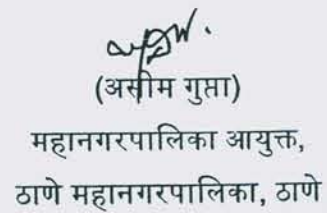 (असीम गुप्ता)
महानगरपालिका आयुक्त,
ठाणे महानगरपालिका, ठाणे